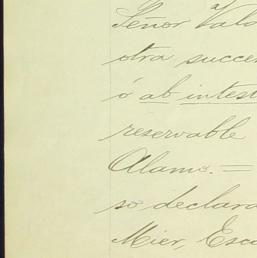 Señor Vald
otra suce
ó ab intest
reservable
Alamo. =
so declara
Mier, Esc